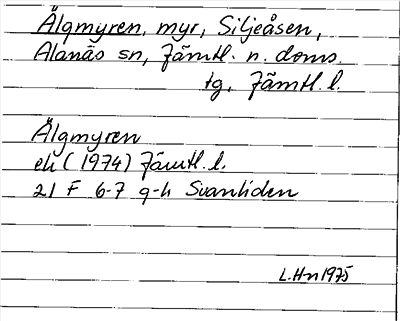 Älgmyren, myr, Siljeåsen,
Alanäs sn, Jämtl. n. doms.
tg, Jämtl. l.
Älgmyren
ek (1974) Jämtl. l.
21 F 6-7 g-h Svanliden
L.H-n 1975